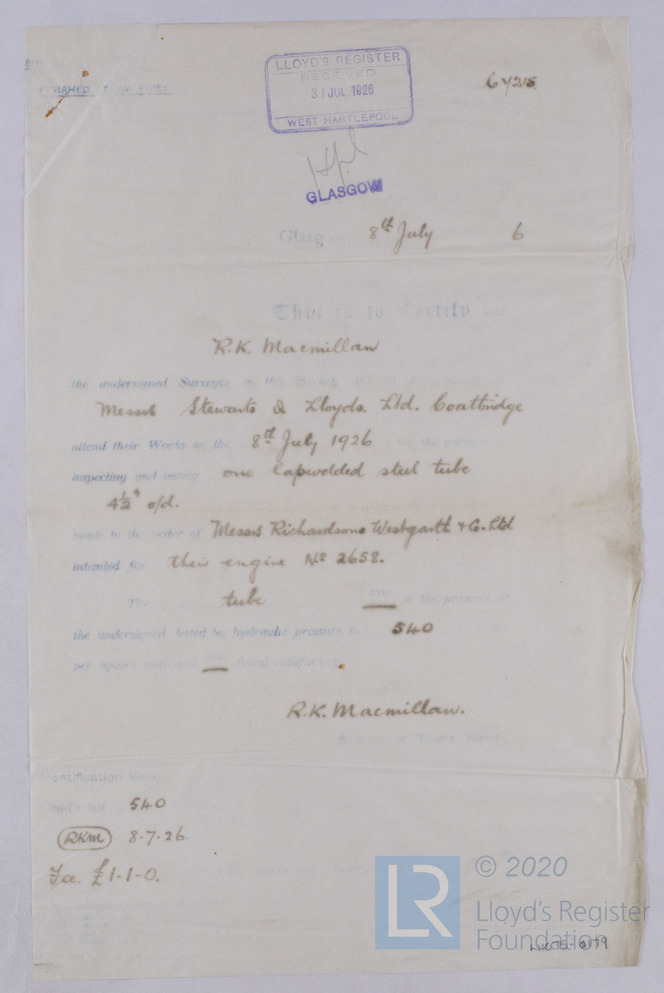 LLOYD'S REGISTER
RECEIVED
31 JUL 1926
WEST HARTLEPOOL
Hpl
GLASGOW
Glasgow 8th July 6
This is to Certify that
R.K. Macmillan
the undersigned Surveyor to this Society
Messrs Stewarts & Lloyds. Ltd. Coatbridge
attend their Works on the 8th July 1926 for the purpose
inspecting and testing one lapwelded steel tube
4½" o/d.
made to the order of Messrs Richardsons Westgarth & Co. Ltd
intended for their engine No 2658.
The tube in the presence of
the undersigned tested by hydraulic pressure to 540
per square inch and found satisfactory.
R.K. Macmillan.
Identification Mark
540
RKM 8.7.26.
Fee. £1-1-0.
LR © 2020
Lloyd's Register
Foundation